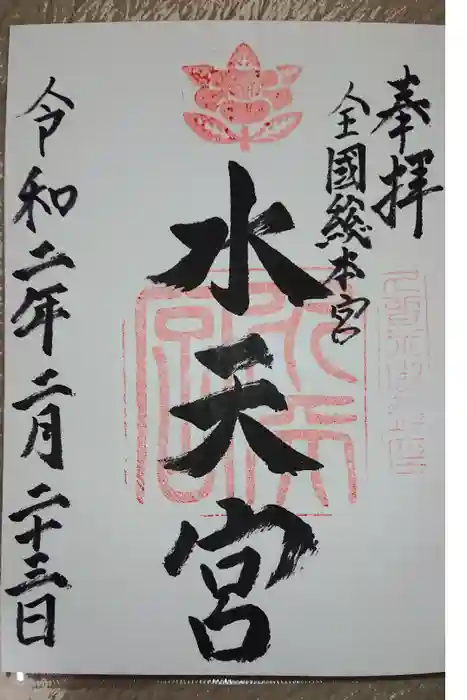 奉拝
全國総本宮
水天宮
令和二年二月二十三日